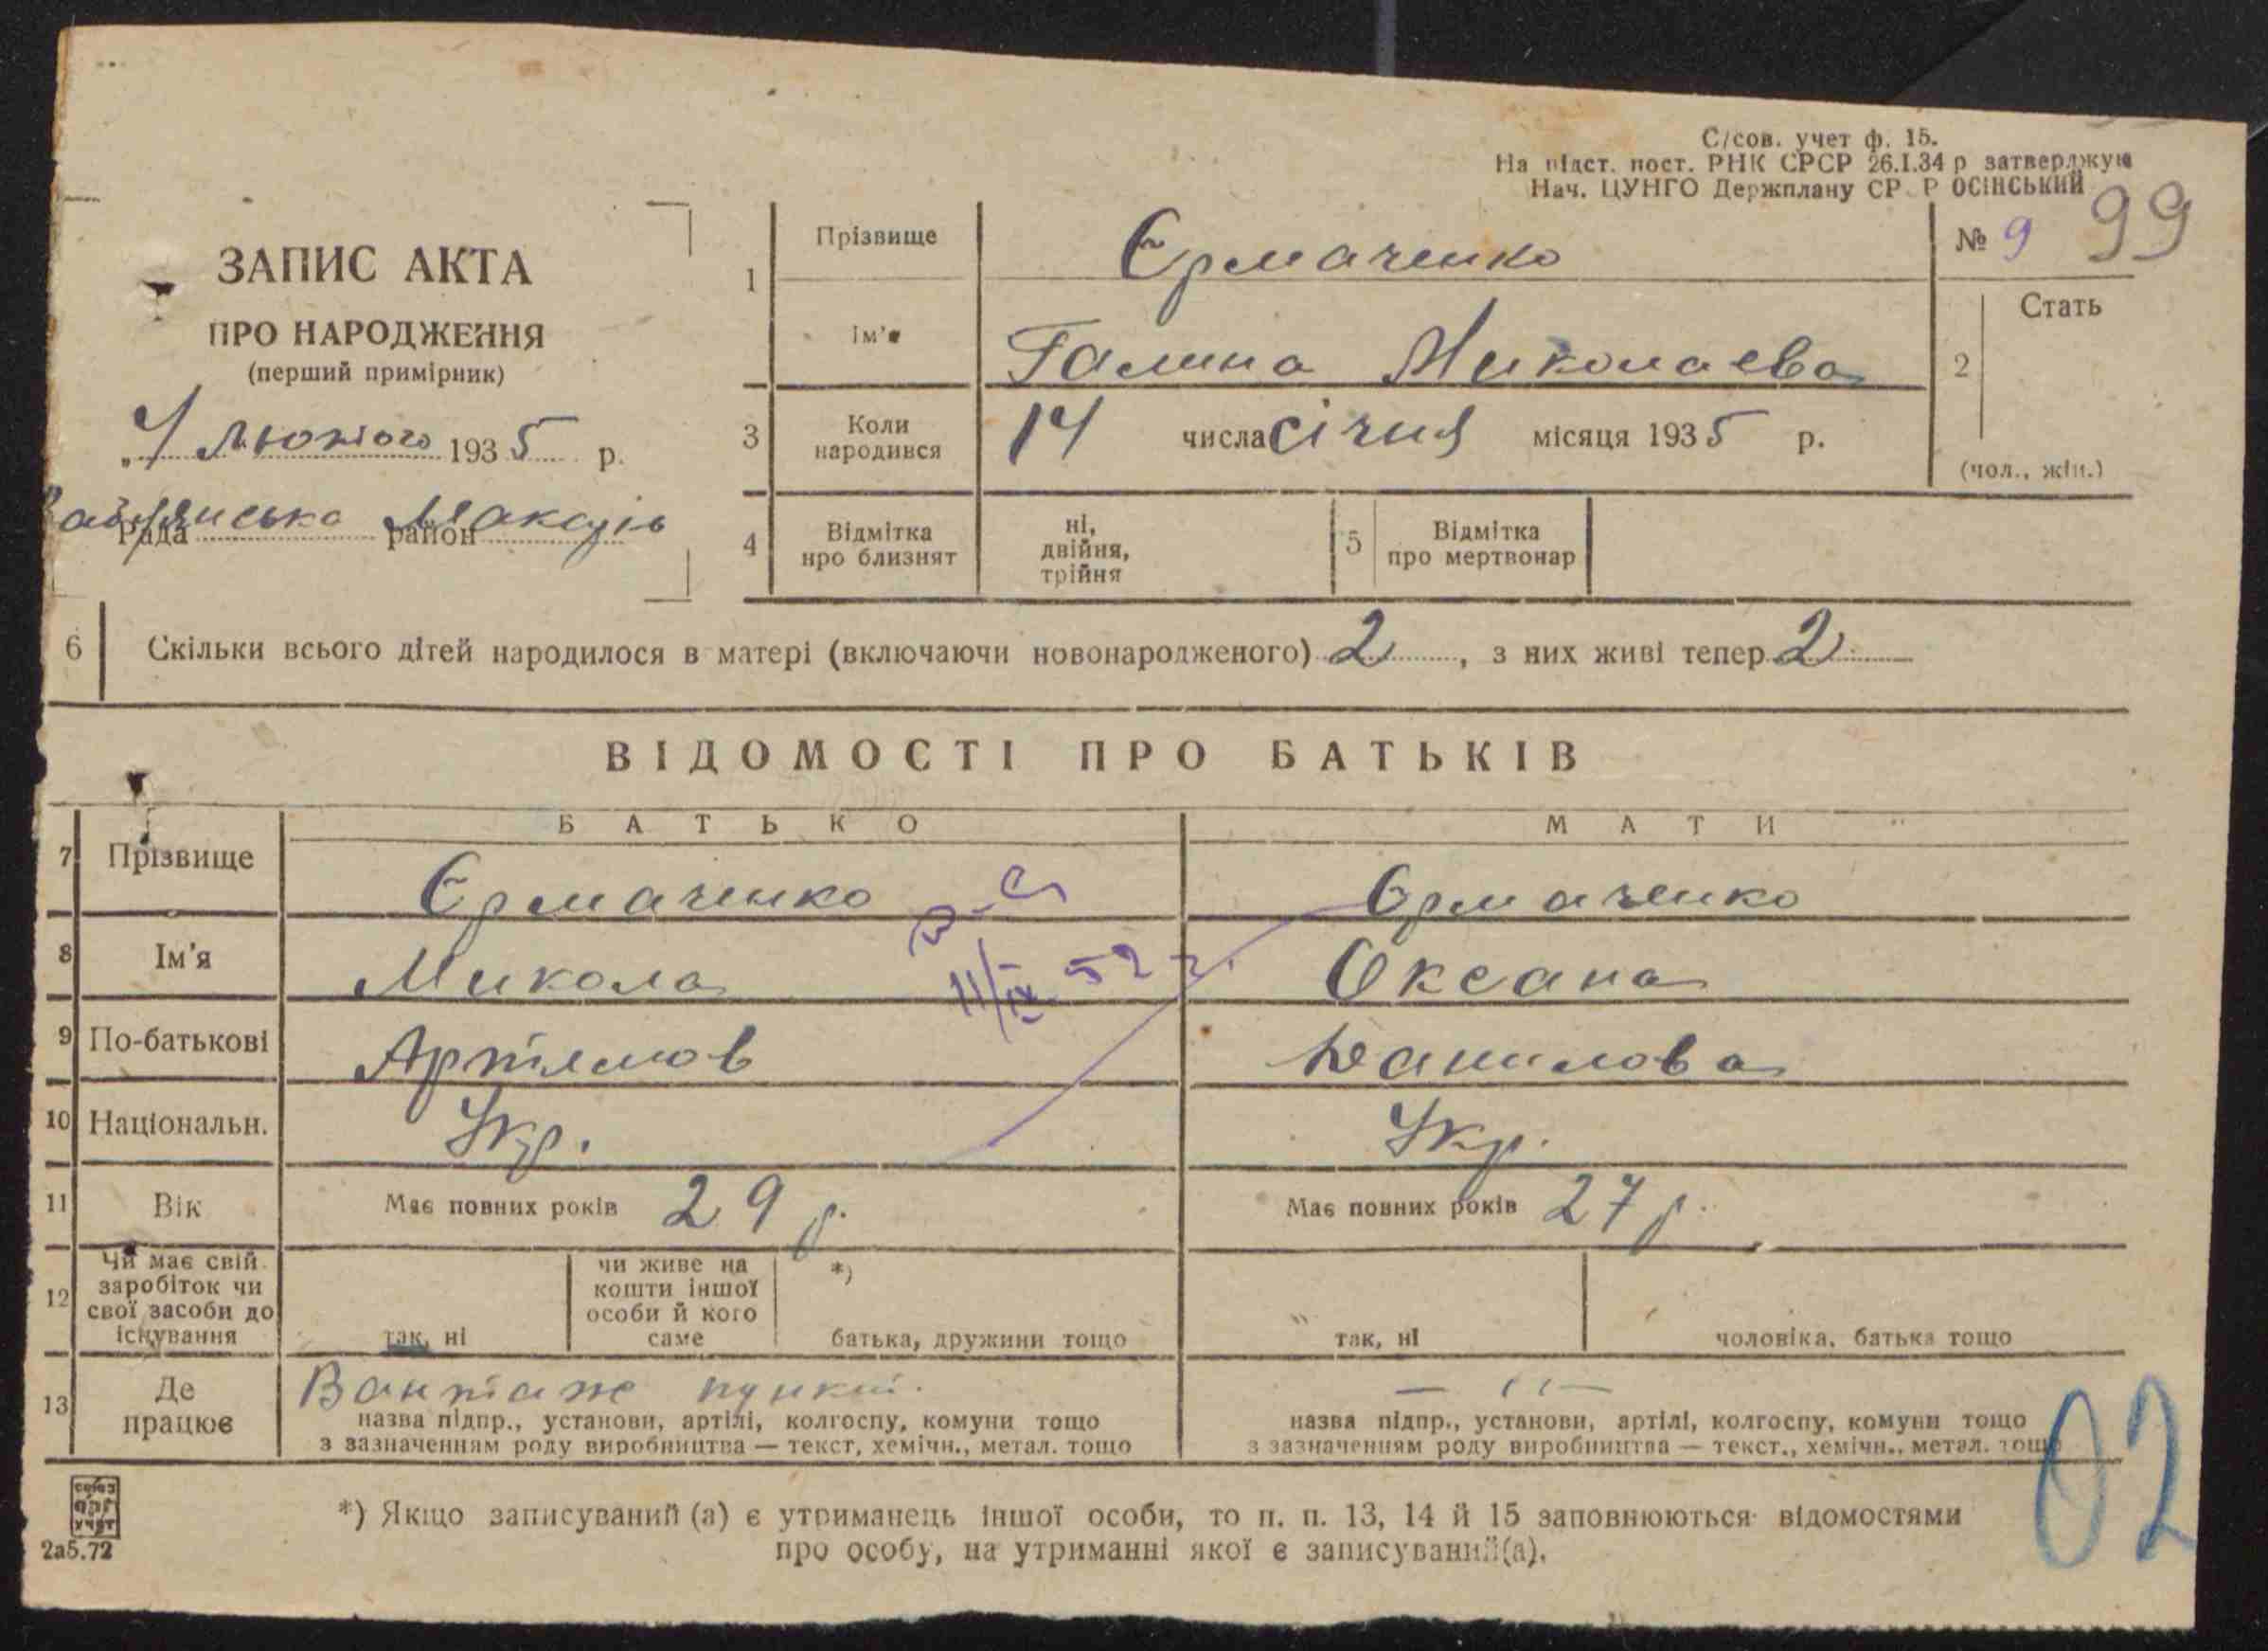 С/сов. учет ф. 15.
На підст. пост. РНК СРСР 26.I.34 р затверджую
Нач. ЦУНГО Держплану СР Р ОСІНСЬКИЙ
99
ЗАПИС АКТА
ПРО НАРОДЖЕННЯ
(перший примірник)
„7 Лютого 1935 р.
Рада район Макарів
1 Прізвище Єрмаченко
№ 9
Ім'я Галина Миколаева
2 Стать
(чол., жін.)
3 Коли народився 14 числа січня місяця 1935 р.
4 Відмітка про близнят ні, двійня, трійня 5 Відмітка про мертвонар
6 Скільки всього дітей народилося в матері (включаючи новонародженого) 2, з них живі тепер 2
ВІДОМОСТІ ПРО БАТЬКІВ
БАТЬКО МАТИ
7 Прізвище Єрмаченко Єрмаченко
8 Ім'я Микола Оксана
11/IX 52 г.
9 По-батькові Артемов Данилова
10 Національн. Укр. Укр.
11 Вік Має повних років 29 р. Має повних років 27 р.
12 Чи має свій заробіток чи свої засоби до існування так, ні чи живе на кошти іншої особи й кого саме *) батька, дружини тощо так, ні чоловіка, батька тощо
13 Де працює Вантаж пункт. — " —
назва підпр., установи, артілі, колгоспу, комуни тощо назва підпр., установи, артілі, колгоспу, комуни тощо
з зазначенням роду виробництва — текст, хемічн., метал. тощо з зазначенням роду виробництва — текст., хемічн., метал. тощо
02
союз орг учет
2а5.72
*) Якщо записуваний (а) є утриманець іншої особи, то п. п. 13, 14 й 15 заповнюються відомостями
про особу, на утриманні якої є записуваний(а).